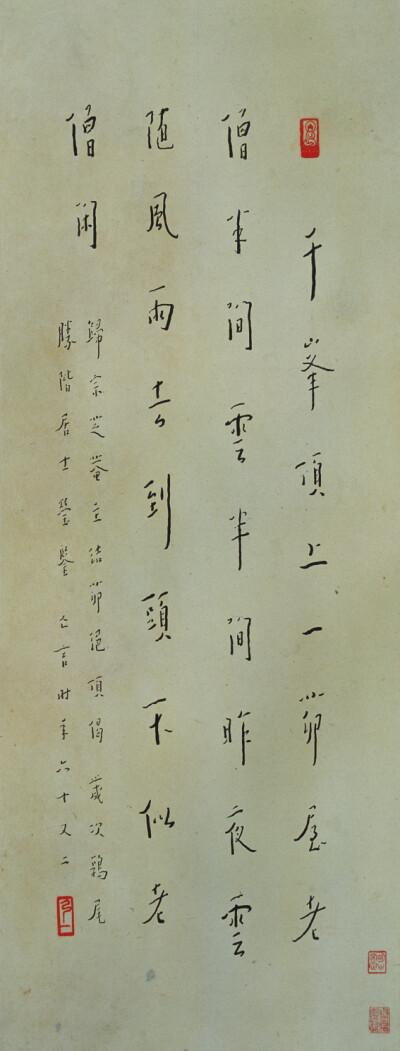 千峯頂上一茆屋老
僧半間雲半間昨夜雲
隨風雨去到頭不似老
僧閑
歸宗芝菴主結茆絶頂偈歲次鶉尾
勝階居士瑩鑒亡言時年六十又二
弘一